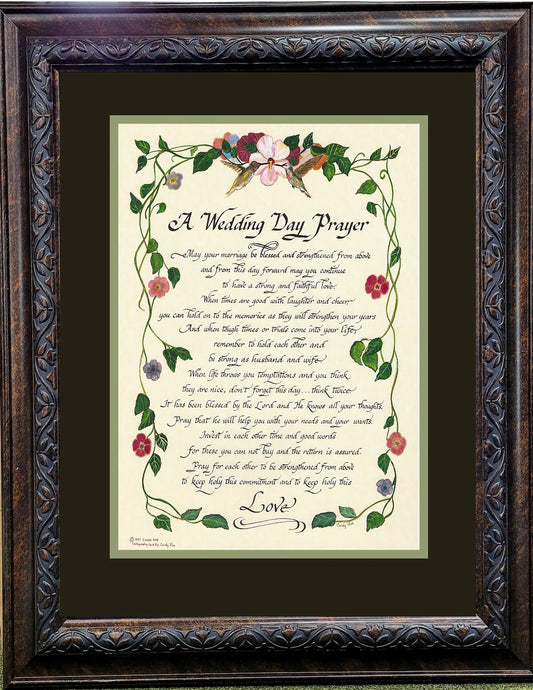 A Wedding Day Prayer
May your marriage be blessed and strengthened from above
and from this day forward may you continue
to have a strong and faithful love.
When times are good with laughter and cheer,
you can hold on to the memories as they will strengthen your years
And when tough times or trials come into your life,
remember to hold each other and
be strong as husband and wife.
When life throws you temptations and you think
they are nice, don't forget this day... think twice.
It has been blessed by the Lord and He knows all your thoughts.
Pray that he will help you with your needs and your wants.
Invest in each other time and good words
for these you can not buy and the return is assured.
Pray for each other to be strengthened from above
to keep holy this commitment and to keep holy this
Love